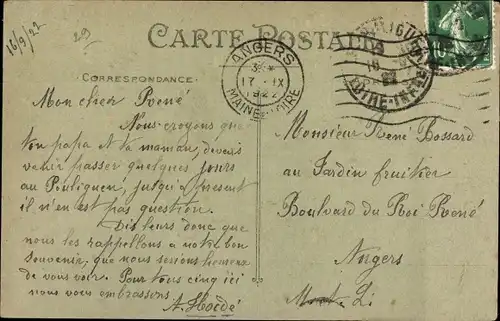 16/9/22
29
CARTE POSTALE
CORRESPONDANCE
ANGERS
17 - IX
1922
MAINE-ET-LOIRE
Mon cher René
Nous croyons que
ton papa et la maman, devais
venir passer quelques jours
au Pouliguen, jusqu'a present
il n'en est pas question.
Dis leurs donc que
nous les rappellons a notre bon
souvenir, que nous serions heureux
de vous voir. Pour tous cinq ici
nous vous embrassons
Monsieur René Bossard
au Jardin fruitier
Boulvard du Roi René
Angers